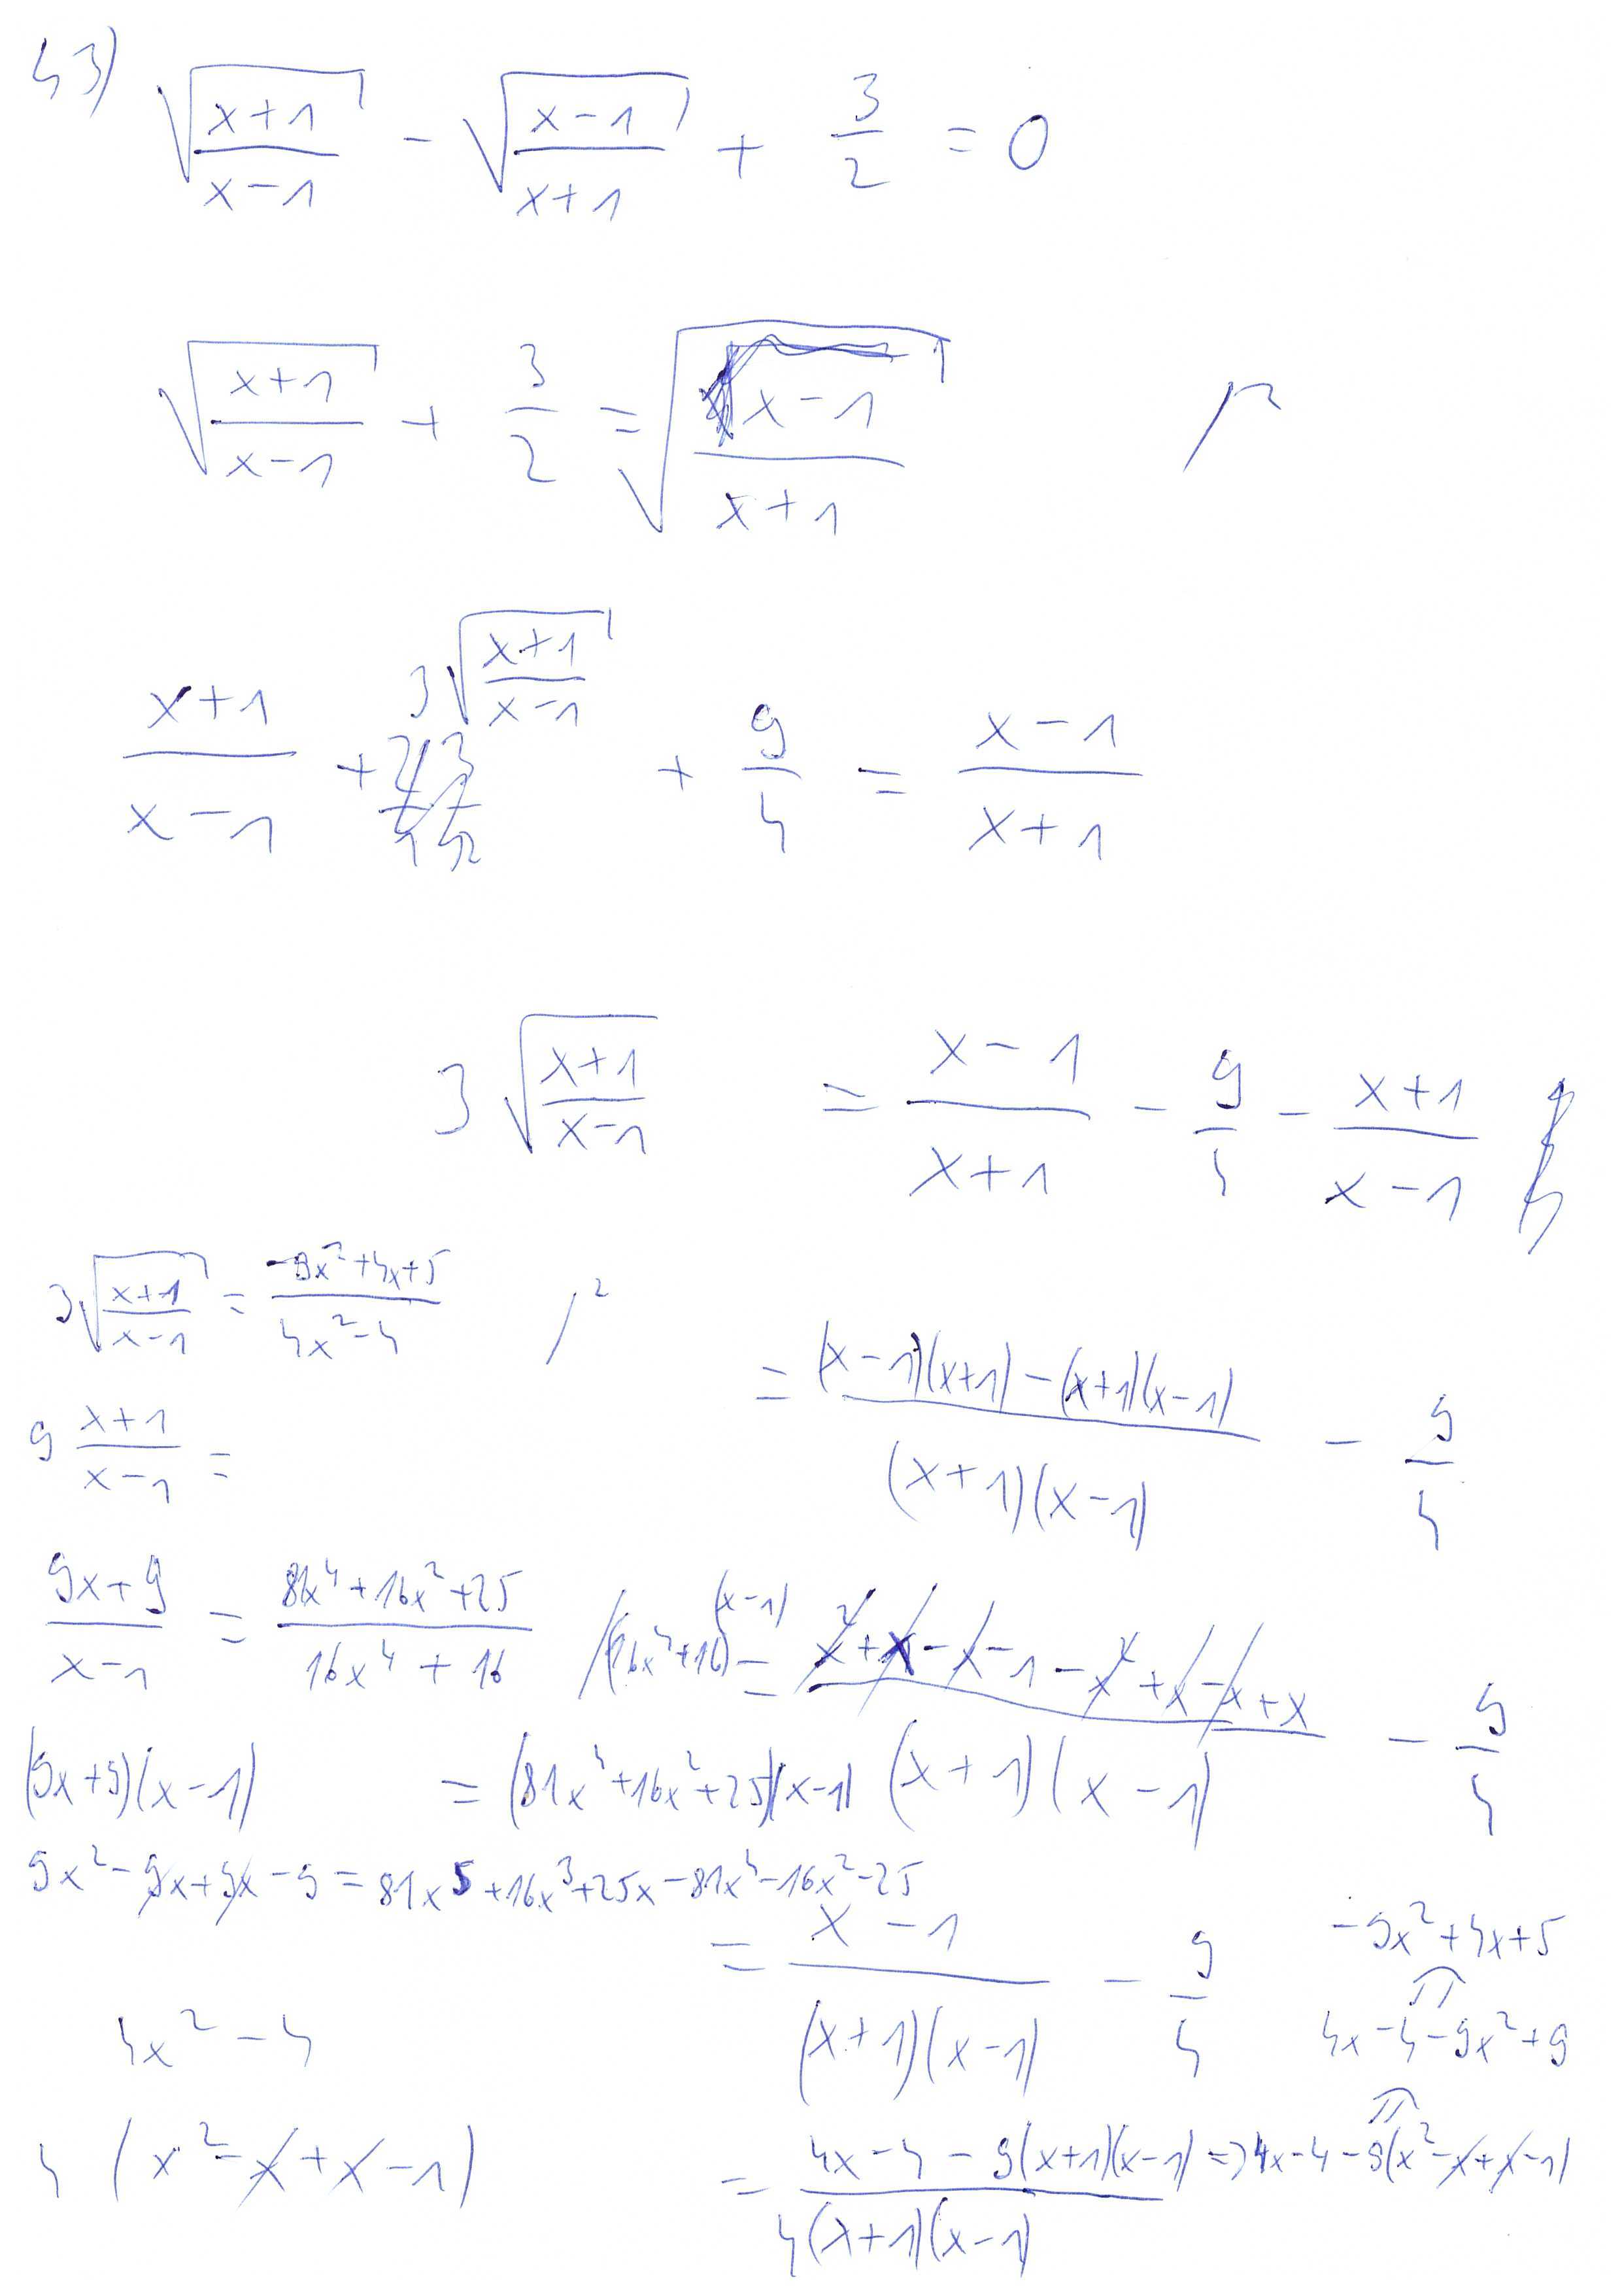 43) √((x+1)/(x-1)) - √((x-1)/(x+1)) + 3/2 = 0
√((x+1)/(x-1)) + 3/2 = √((x-1)/(x+1)) /²
(x+1)/(x-1) + 3√((x+1)/(x-1)) + 9/4 = (x-1)/(x+1)
3√((x+1)/(x-1)) = (x-1)/(x+1) - 9/4 - (x+1)/(x-1)
3√((x+1)/(x-1)) = (-9x²+4x+5)/(4x²-4) /²
= ((x-1)(x+1)-(x+1)(x-1))/((x+1)(x-1)) - 9/4
9 (x+1)/(x-1) =
(9x+9)/(x-1) = (81x⁴+16x²+25)/(16x⁴+16) /(16x⁴+16)(x-1)
= (x²+x-x-1-x²+x-x+x)/((x+1)(x-1)) - 9/4
(9x+9)(x-1) = (81x⁴+16x²+25)(x-1)
9x²-9x+9x-9 = 81x⁵+16x³+25x-81x⁴-16x²-25
= (x-1)/((x+1)(x-1)) - 9/4
-9x²+4x+5
4x²-4
4x-4-9x²+9
4(x²-x+x-1)
= (4x-4-9(x+1)(x-1))/(4(x+1)(x-1)) => 4x-4-9(x²-x+x-1)